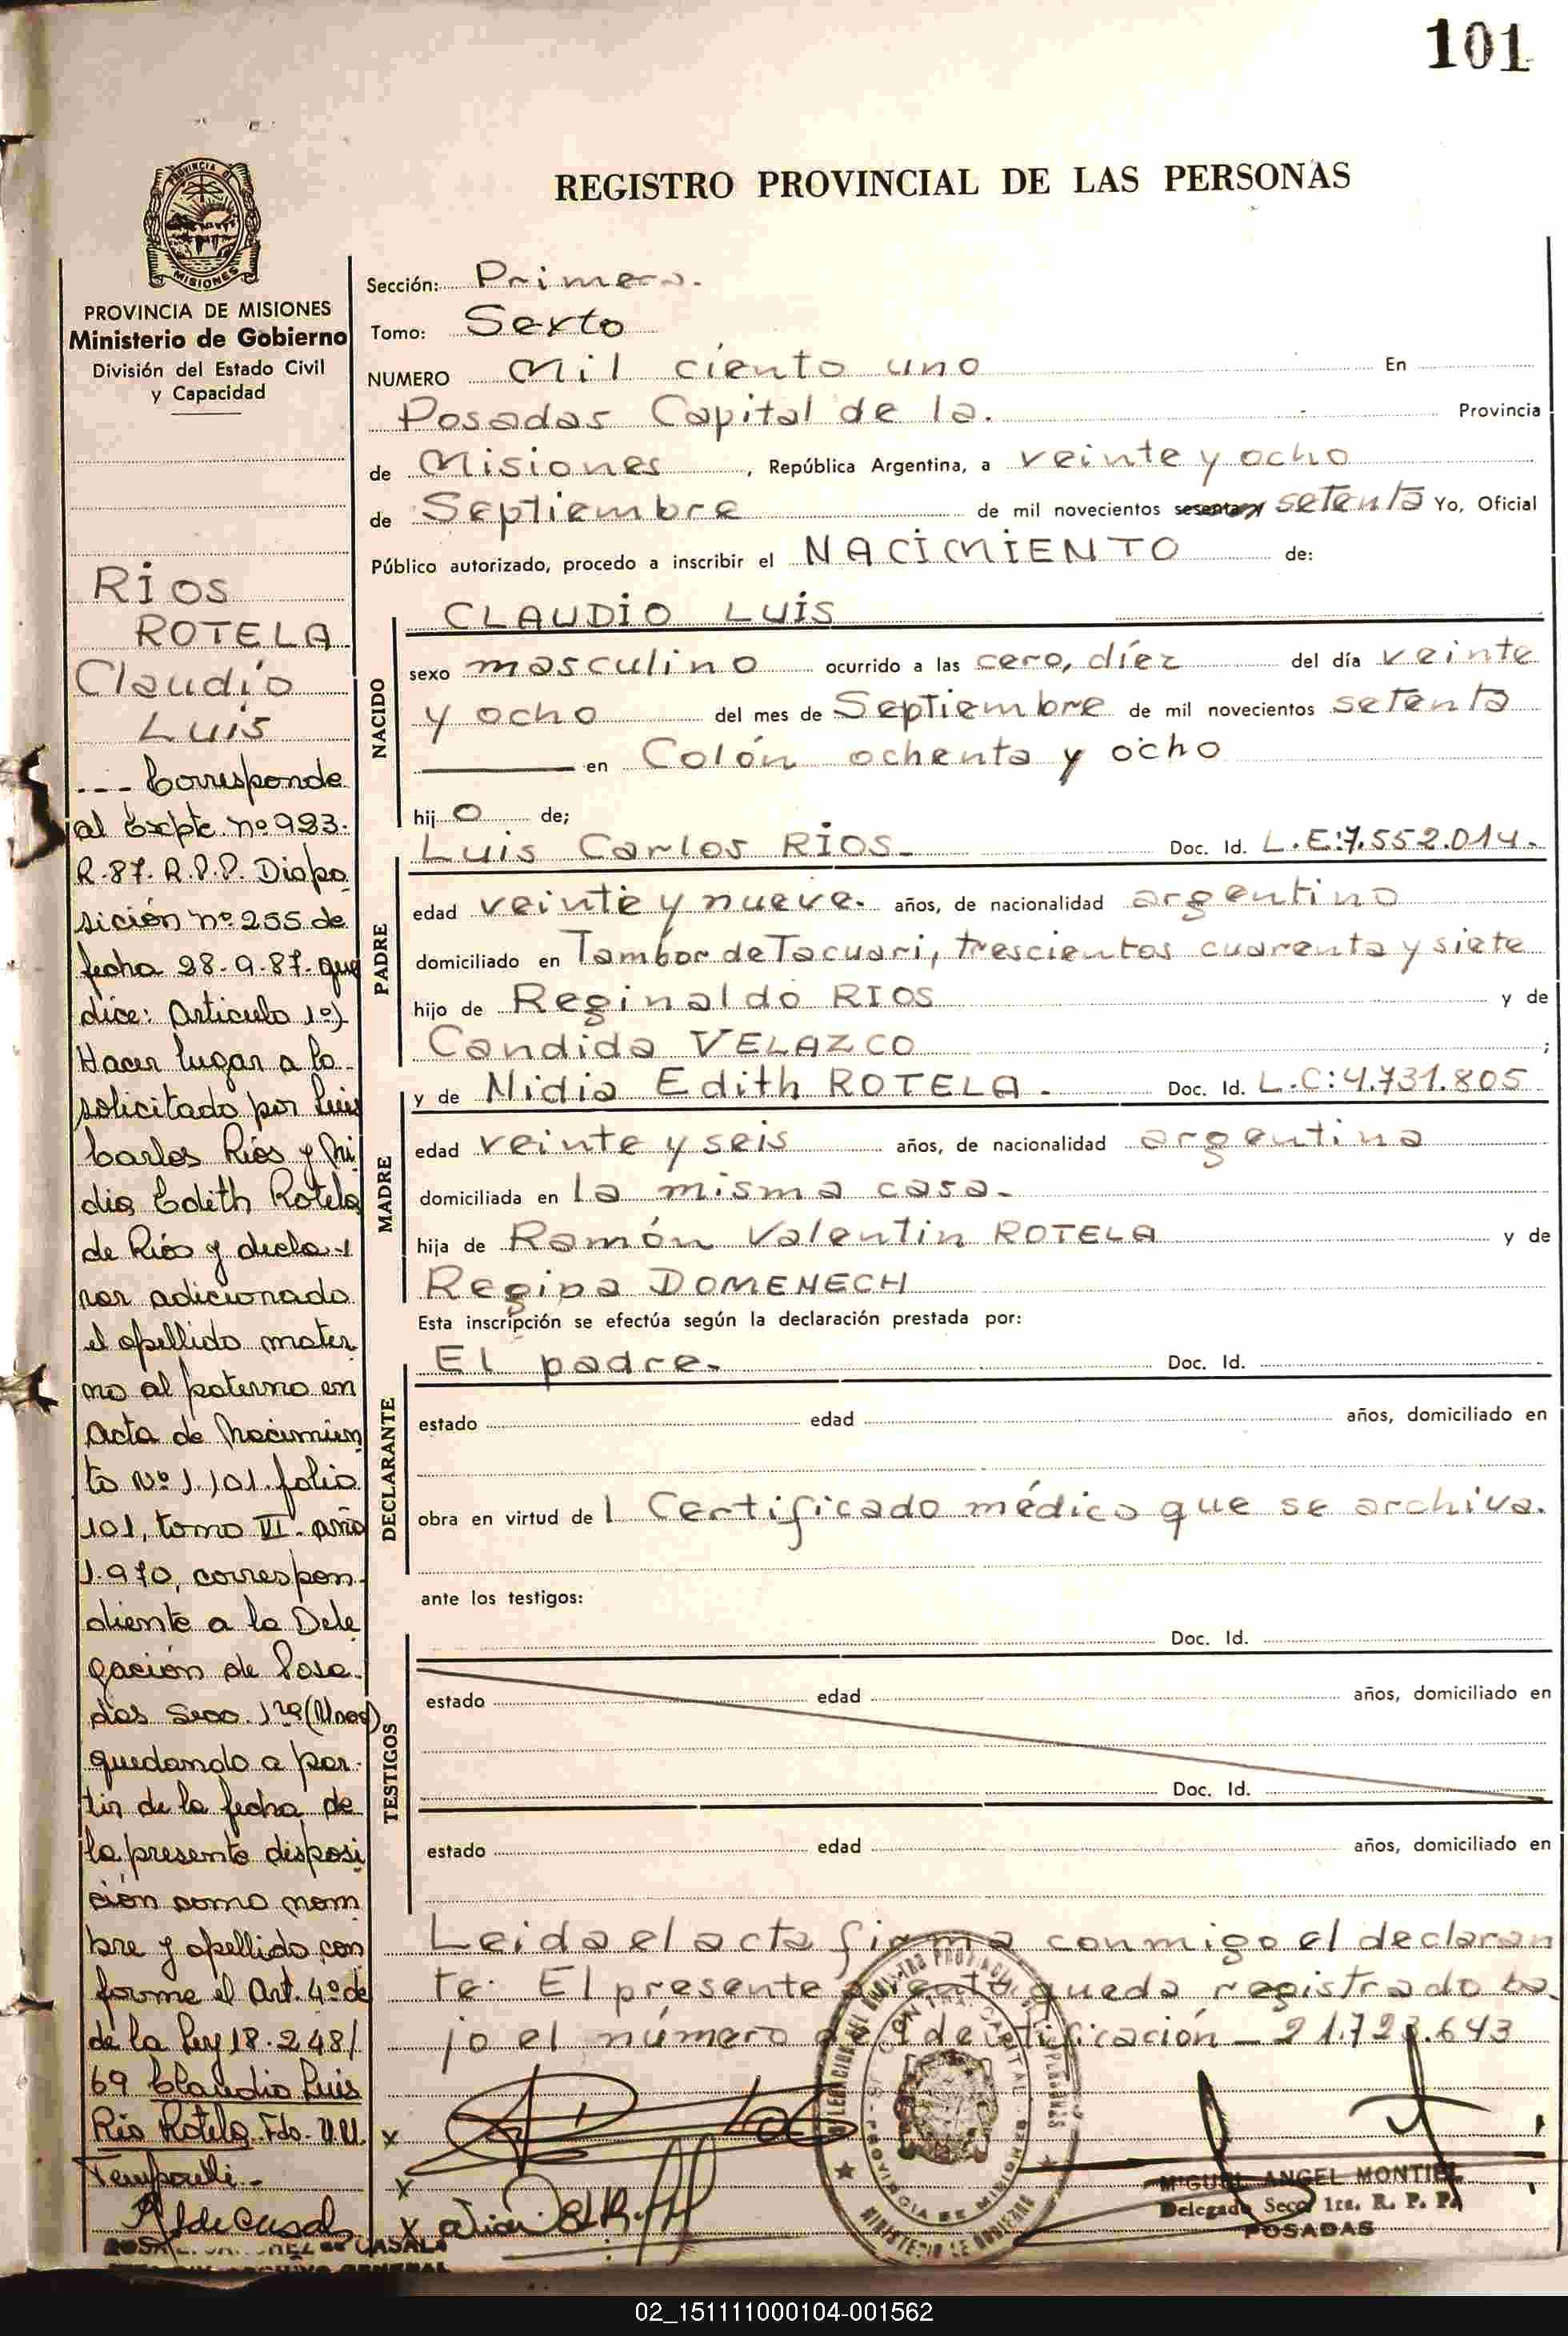 101
REGISTRO PROVINCIAL DE LAS PERSONAS
PROVINCIA DE
MISIONES
PROVINCIA DE MISIONES
Ministerio de Gobierno
División del Estado Civil
y Capacidad
RiOS
ROTELA
Claudio
Luis
--- Corresponde
al Expte nº 923.
R-87. R.P.P. Dispo
sición nº 255 de
fecha 28-9-87- que
dice: Artículo 1º)
Hacer lugar a lo
solicitado por Luis
Carlos Ríos y Ni
dia Edith Rotela
de Ríos y decla-
rar adicionado
el apellido mater
no al paterno en
Acta de Nacimien
to Nº 1.101. folio
101, tomo VI- año
1.970, correspon-
diente a la Dele
gación de Posa-
das Secc. 1ra (Una)
quedando a par-
tir de la fecha de
la presente disposi
ción como nom
bre y apellido con
forme el Art. 4º de
de la Ley 18.248/
69 Claudio Luis
Río Rotela. Fdo.
Sección: Primera.
Tomo: Sexto
NUMERO Mil ciento uno En
Posadas Capital de la. Provincia
de Misiones, República Argentina, a veinte y ocho
de Septiembre de mil novecientos sesenta y setenta Yo, Oficial
Público autorizado, procedo a inscribir el NACiMiENTO de:
NACIDO
CLAUDiO LUiS
sexo masculino ocurrido a las cero, díez del día veinte
y ocho del mes de Septiembre de mil novecientos setenta
en Colón ochenta y ocho
hij o de;
PADRE
Luis Carlos RiOS- Doc. Id. L.E:7.552.014.-
edad veinte y nueve. años, de nacionalidad argentino
domiciliado en Tambor de Tacuari, trescientos cuarenta y siete
hijo de Reginaldo RIOS y de
Candida VELAZCO ;
MADRE
y de Nidia Edith ROTELA - Doc. Id. L.C:4.731.805
edad veinte y seis años, de nacionalidad argentina
domiciliada en la misma casa-
hija de Ramón Valentin ROTELA y de
Regina DOMENECH
Esta inscripción se efectúa según la declaración prestada por:
DECLARANTE
El padre- Doc. Id.
estado edad años, domiciliado en
obra en virtud de l Certificado médico que se archiva.
ante los testigos:
TESTIGOS
Doc. Id.
estado edad años, domiciliado en
Doc. Id.
estado edad años, domiciliado en
Leida el acta firma conmigo el declaran
te. El presente queda registrado ba
jo el número de Identificación - 21.723.643
MIGUEL ANGEL MONTIEL
Delegado Secc. 1ra. R. P. P.
POSADAS
02_151111000104-001562